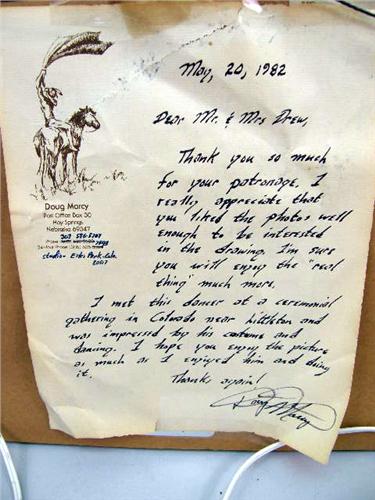 May, 20, 1982
Dear Mr. & Mrs Drew,
Thank you so much
for your patronage. I
really appreciate that
you liked the photos well
enough to be interested
in the drawing. I'm sure
you will enjoy the "real
thing" much more.
I met this dancer at a ceremonial
gathering in Colorado near Littleton and
was impressed by his costume and
dancing. I hope you enjoy the picture
as much as I enjoyed him and doing
it.
Thanks again!
Doug Marcy
Doug Marcy
Post Office Box 30
Hay Springs
Nebraska 69347
303 586-5707
studio- Estes Park, Colo.